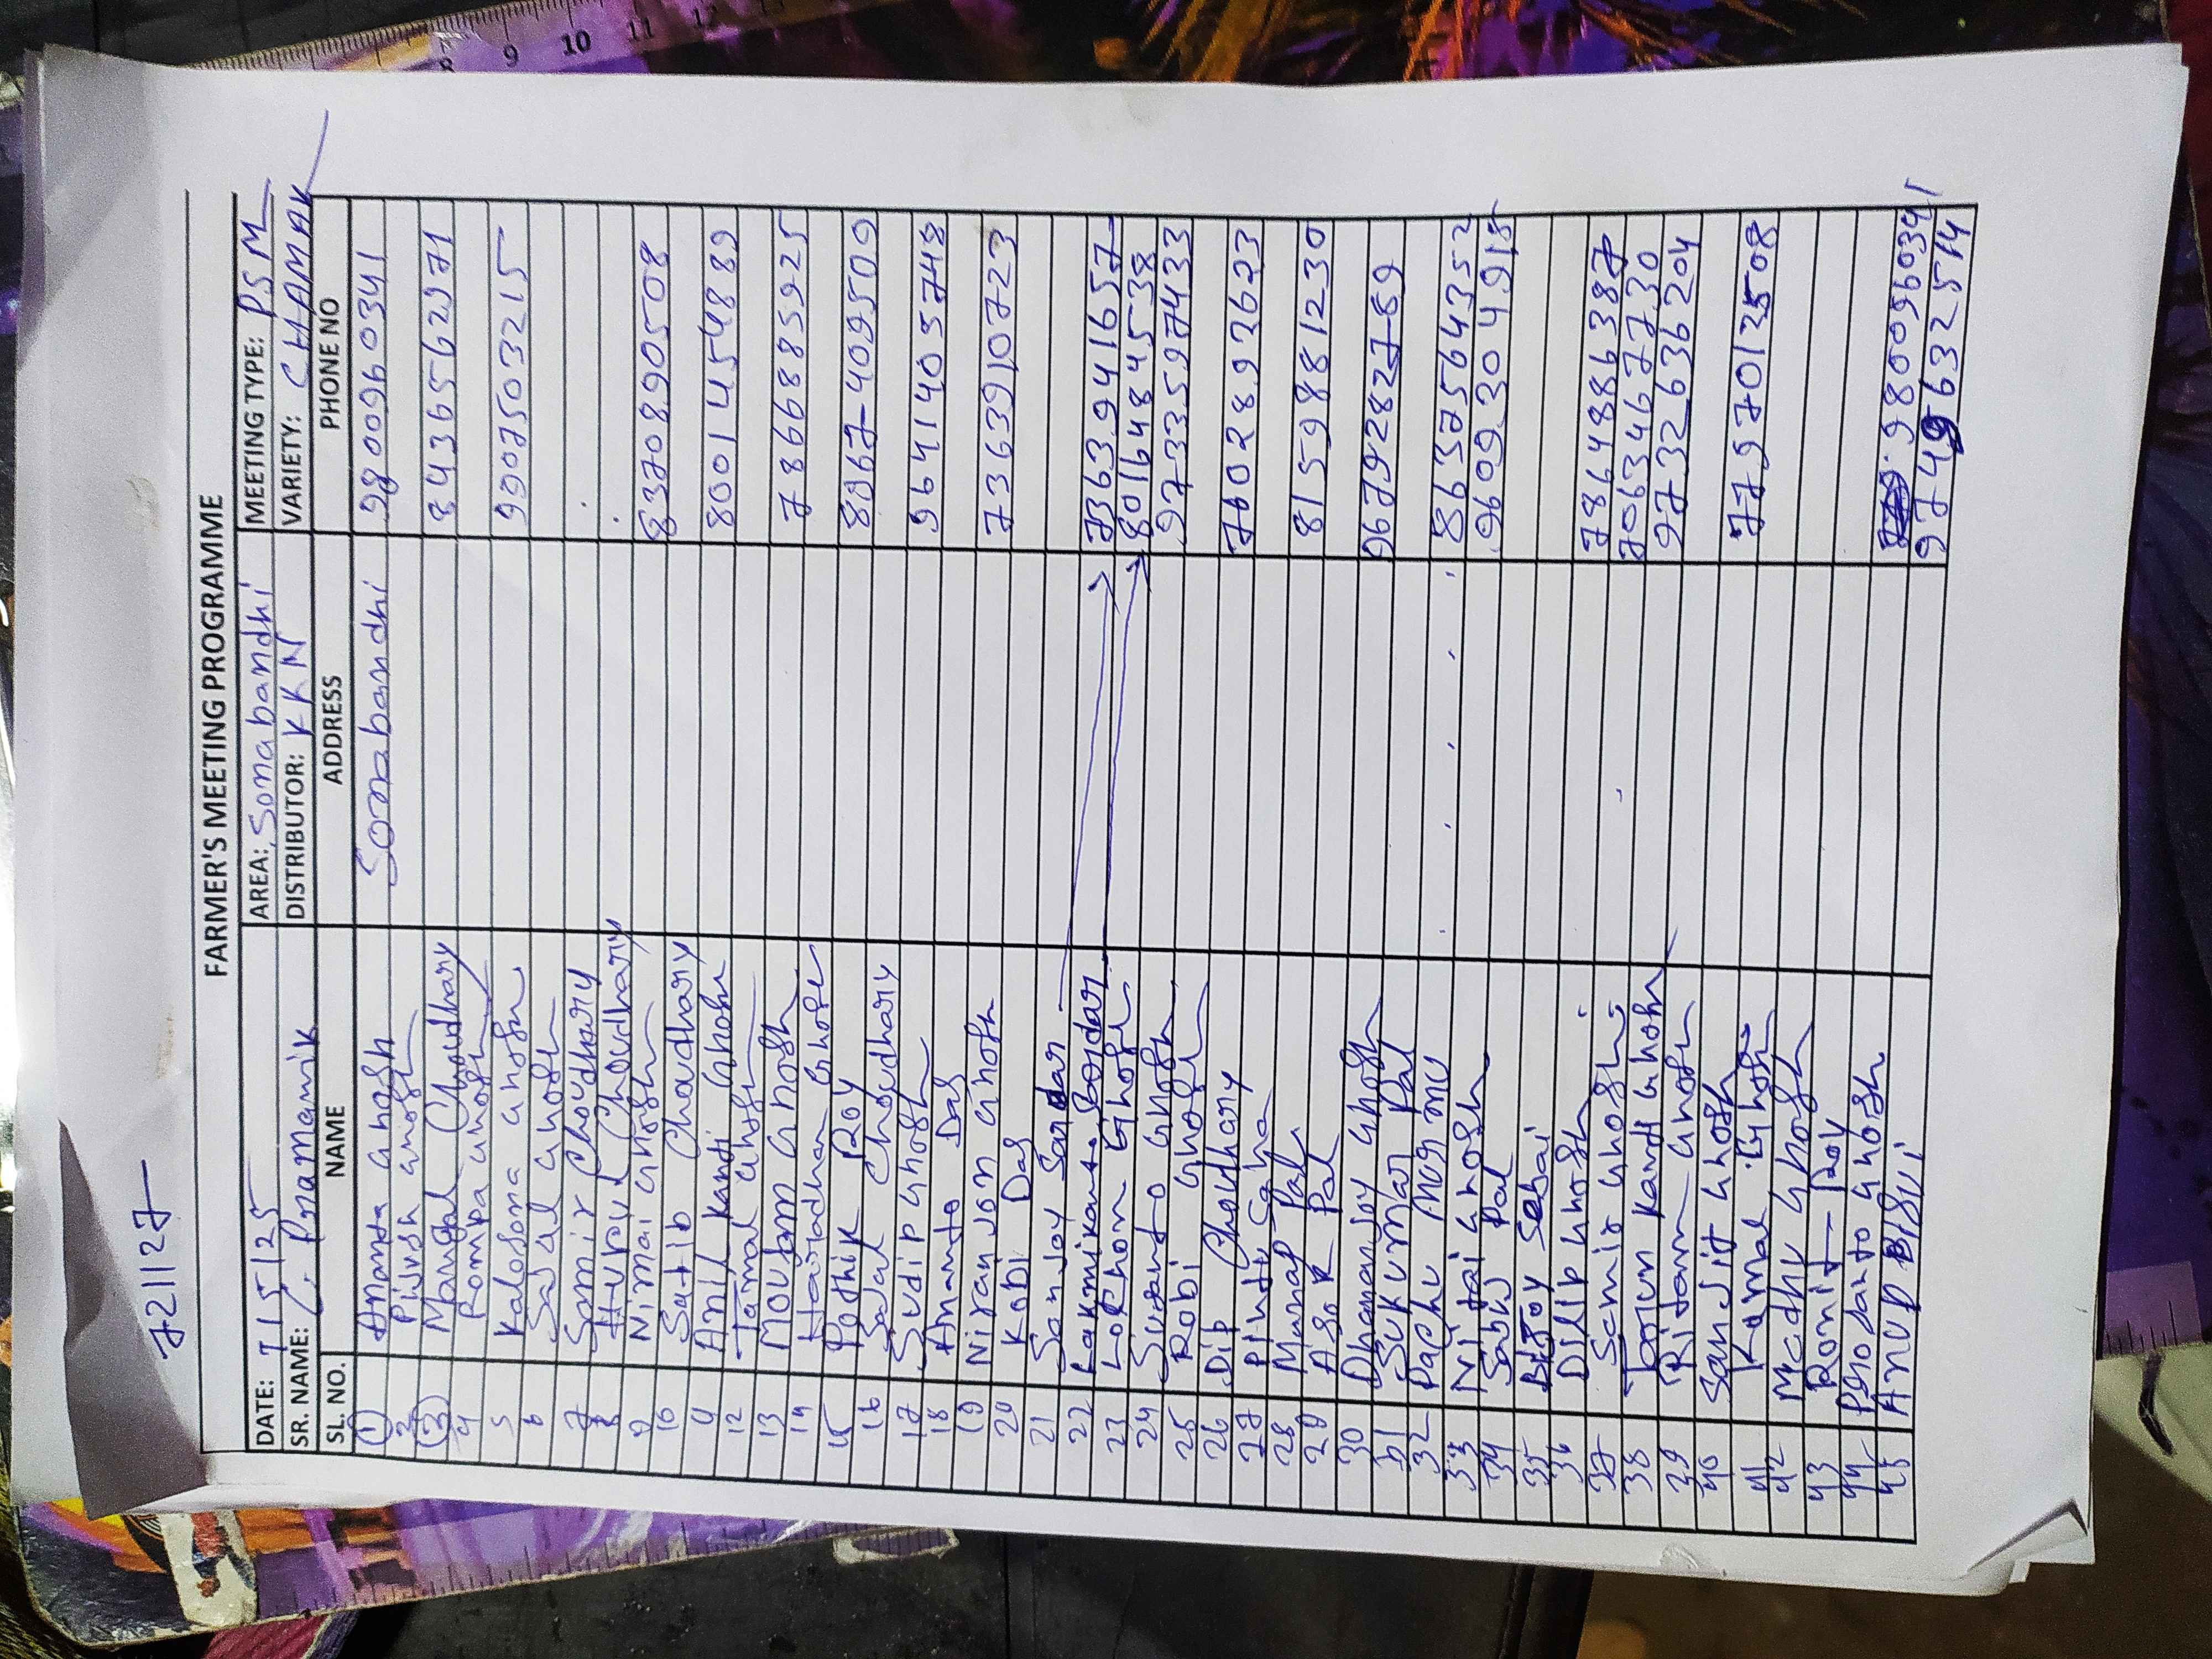 7211127
FARMER'S MEETING PROGRAMME
DATE: 7/5/25 AREA: Sonabandhi MEETING TYPE: PSM
SR. NAME: C. Pramanik DISTRIBUTOR: KKN VARIETY: CHAMAK
SL. NO. NAME ADDRESS PHONE NO
1 Ananda Ghosh Sonabandhi 9800960341
2 Pijush Ghosh
3 Mangal Choudhary 8436562971
4 Rompa Ghosh
5 Kalosona Ghosh 9907503215
6 Sajal Ghosh
7 Samir Choudhary
8 Hupul Choudhary
9 Nimai Ghosh 8370890508
10 Sattib Choudhary
11 Anil Kanti Ghosh 8001454889
12 Tamal Ghosh
13 Moujam Ghosh 7866885925
14 Haradhan Ghosh
15 Pathik Roy 8967409509
16 Sajal Choudhary
17 Sudip Ghosh 9641405748
18 Ananto Das
19 Niranjon Ghosh 7363910723
20 Kobi Das
21 Sanjoy Sardar
22 Lakmikanta Sardar 7363941657
23 Lokhon Ghosh 8016484538
24 Susanto Ghosh 9733597433
25 Robi Ghosh
26 Dip Choudhary 7602893623
27 Pintu Saha
28 Munap Pal 8159881230
29 Asok Pal
30 Dhananjoy Ghosh 9679282789
31 Sukumar Pal
32 Pachu Murmu 8637564352
33 Nitai Ghosh 9609304915
34 Sabuj Pal
35 Bijoy Sebai
36 Dilip Ghosh 7864886387
37 Samir Ghosh 7063467730
38 Torun Kanti Ghosh 9732636204
39 Ritam Ghosh
40 Sanjit Ghosh 7797013508
41 Kamal Ghosh
42 Madhu Ghosh
43 Ronit Roy
44 Prosanto Ghosh 9800960341
45 Anup Bisui 9749632514
8 9 10 11 12